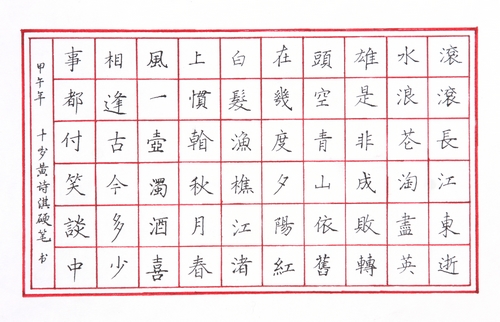 滾滾長江東逝
水浪花淘盡英
雄是非成敗轉
頭空青山依舊
在幾度夕陽紅
白髮漁樵江渚
上慣翰秋月春
風一壺濁酒喜
相逢古今多少
事都付笑談中
甲午年 十岁黄诗淇硬笔书